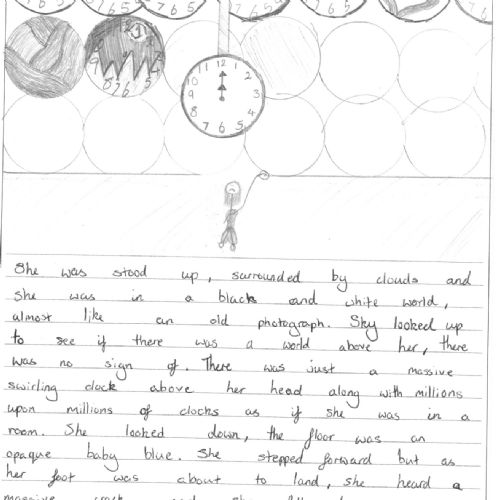 7 6 5
7 6 5
7 6 5
7 6 5
12
8 7 6 5
11 12 1
10 2
9 3
8 4
7 6 5
She was stood up, surrounded by clouds and
she was in a black and white world,
almost like an old photograph. Sky looked up
to see if there was a world above her, there
was no sign of. There was just a massive
swirling clock above her head along with millions
upon millions of clocks as if she was in a
room. She looked down, the floor was an
opaque baby blue. She stepped forward but as
her foot was about to land, she heard a